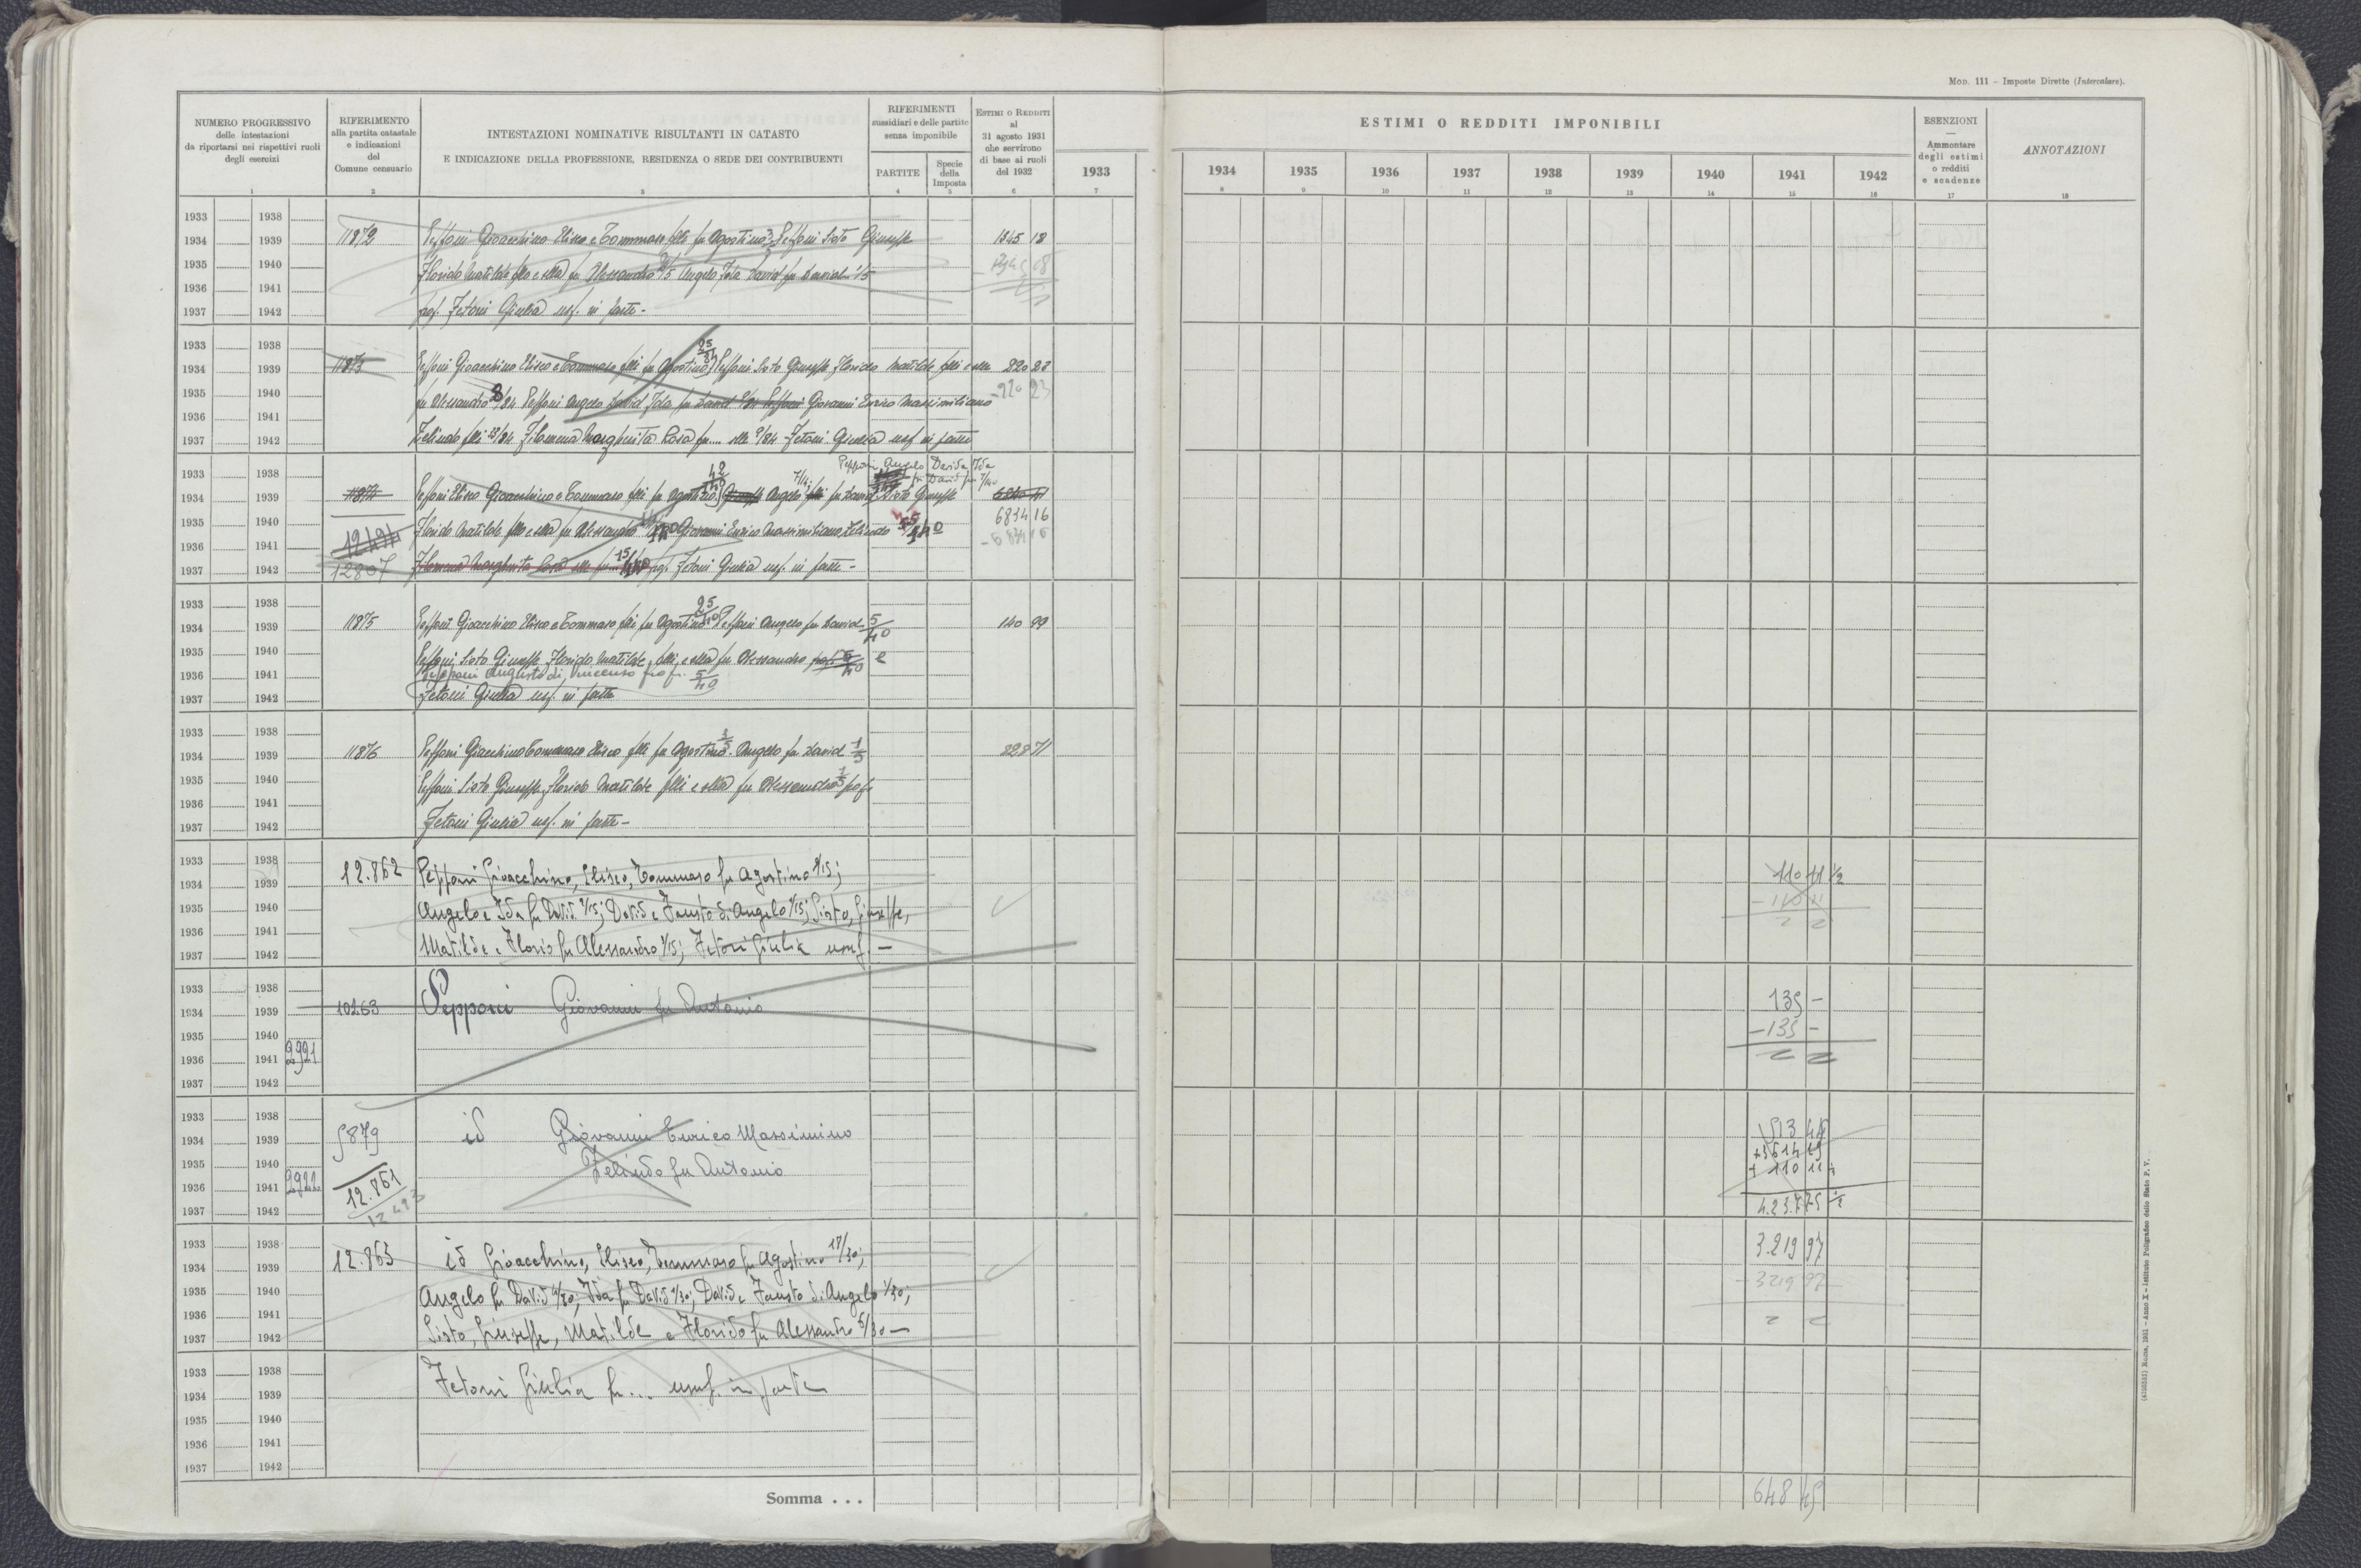 Mod. 111 – Imposte Dirette (Intercalare).
NUMERO PROGRESSIVO
delle intestazioni
da riportarsi nei rispettivi ruoli
degli esercizi
1
RIFERIMENTO
alla partita catastale
e indicazioni
del
Comune censuario
2
INTESTAZIONI NOMINATIVE RISULTANTI IN CATASTO
E INDICAZIONE DELLA PROFESSIONE, RESIDENZA O SEDE DEI CONTRIBUENTI
3
RIFERIMENTI
sussidiari e delle partite
senza imponibile
PARTITE
4
Specie
della
Imposta
5
Estimi o Redditi
al
31 agosto 1931
che servirono
di base ai ruoli
del 1932
6
1933
7
ESTIMI O REDDITI IMPONIBILI
1934 1935 1936 1937 1938 1939 1940 1941 1942
8 9 10 11 12 13 14 15 16
ESENZIONI
—
Ammontare
degli estimi
o redditi
e scadenze
17
ANNOTAZIONI
18
1933 1938
1934 1939 11872 Pepponi Gioacchino Eliseo e Tommaso flli fu Agostino Pepponi Sisto Giuseppe 1345 18
1935 1940 Florido Matilde flli e slla fu Alessandro Angelo Ida David fu David 1/5
1936 1941
1937 1942 pof. Fetoni Giulia usf. in parte -
1933 1938
1934 1939 11873 Pepponi Gioacchino Eliseo e Tommaso flli fu Agostino 25/84 Pepponi Sisto Giuseppe Florido Matilde flli e slla 220 23
1935 1940 fu Alessandro 8/84 Pepponi Angelo David Ida fu David Pepponi Giovanni Enrico Massimiliano - 220 23
1936 1941
1937 1942 Zelindo flli 33/84 Filomena Margherita Rosa fu.... slle 9/84 Fetoni Giulia usf in parte
Pepponi Angelo David Ida
1933 1938 fu David 7/40
1934 1939 11874 Pepponi Eliseo Gioacchino e Tommaso flli fu Agostino Angelo fu David Sisto Giuseppe
1935 1940 Florido Matilde flli e slla fu Alessandro Giovanni Enrico Massimiliano Zelindo 6834 16
1936 1941 12494 - 6834 16
1937 1942 12807 Filomena Margherita Rosa slle fu pof. Fetoni Giulia usf. in parte -
1933 1938
1934 1939 11875 Pepponi Gioacchino Eliseo e Tommaso flli fu Agostino 25/40 Pepponi Angelo fu David 5/40 140 99
1935 1940 Pepponi Sisto Giuseppe Florido Matilde flli e slla fu Alessandro e
1936 1941 Pepponi Augusto di Vincenzo pof. 5/40
1937 1942 Fetoni Giulia usf. in parte
1933 1938
1934 1939 11876 Pepponi Gioacchino Tommaso Eliseo flli fu Agostino 3/5 Angelo fu David 1/5 228 71
1935 1940 Pepponi Sisto Giuseppe Florido Matilde flli e slla fu Alessandro 1/5 pof
1936 1941
1937 1942 Fetoni Giulia usf. in parte -
1933 1938 12.862 Pepponi Gioacchino, Eliseo, Tommaso fu Agostino 9/15; 110 11 1/2
1934 1939
1935 1940 Angelo e Ida fu David 2/15; David e Fausto di Angelo 1/15; Sisto, Giuseppe, - 110 11
1936 1941
1937 1942 Matilde e Florio fu Alessandro 3/15; Fetoni Giulia usuf. -
1933 1938
1934 1939 10263 Pepponi Giovanni fu Antonio 135 -
1935 1940 - 135 -
1936 1941 2921
1937 1942
1933 1938
1934 1939 5879 id Giovanni Enrico Massimino 513 45
1935 1940 Zelindo fu Antonio + 3614 19
1936 1941 2921 12.861 + 110 11
1937 1942 12493 4.237 75 1/2
1933 1938 3.219 97
1934 1939 12.863 id Gioacchino, Eliseo, Tommaso fu Agostino 18/30;
1935 1940 Angelo fu David 4/30; Ida fu David 1/30; David e Fausto di Angelo 1/30; - 3219 97
1936 1941
1937 1942 Sisto, Giuseppe, Matilde e Florido fu Alessandro 5/30 -
1933 1938 Fetoni Giulia fu ... usuf. in parte
1934 1939
1935 1940
1936 1941
1937 1942
Somma . . . 648 45
Roma, 1931 – Anno X – Istituto Poligrafico dello Stato P. V.